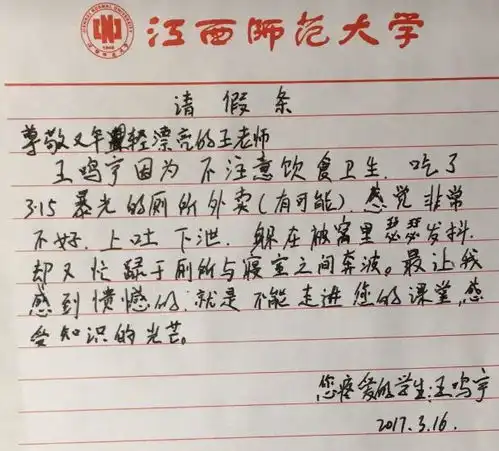 江西师范大学
请假条
尊敬又年轻漂亮的王老师
王鸣宇因为不注意饮食卫生，吃了
3·15暴光的厕所外卖(有可能)，感觉非常
不好，上吐下泄，躲在被窝里瑟瑟发抖，
却又忙碌于厕所与寝室之间奔波。最让我
感到愤憾的，就是不能走进您的课堂，感
受知识的光芒。
您疼爱的学生:王鸣宇
2017.3.16.